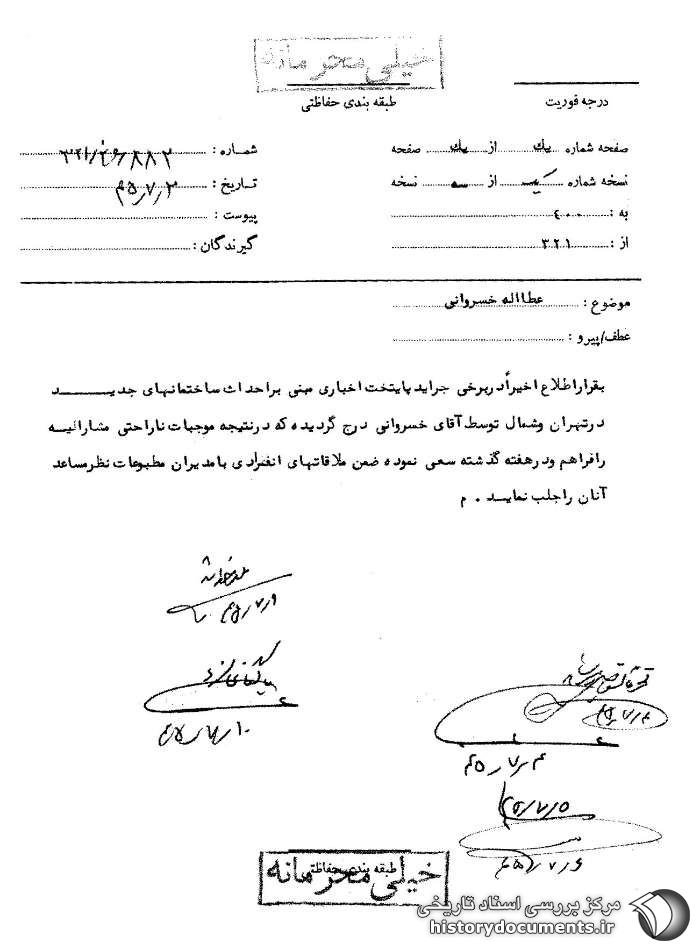 خیلی محرمانه
طبقه بندی حفاظتی
درجه فوریت
صفحه شماره یك از یك صفحه
شماره : ۳۲۱/۴۶۸۸۲
نسخه شماره یک از سه نسخه
تاریخ : ۴۵٫۷٫۳
به : ۴۰۰
پیوست :
از : ۳۲۱
گیرندگان :
موضوع : عطااله خسروانی
عطف/پیرو :
بقراراطلاع اخیراً دربرخی جراید پایتخت اخباری مبنی براحداث ساختمانهای جدید
درتهران وشمال توسط آقای خسروانی درج گردیده که درنتیجه موجبات ناراحتی مشارالیه
رافراهم ودرهفته گذشته سعی نموده ضمن ملاقاتهای انفرادی بامدیران مطبوعات نظرمساعد
آنان راجلب نماید . م
۴۵٫۷٫۹
۴۵٫۷٫۱۰
۴۵٫۷٫۴
۴۵٫۷٫۴
۴۵٫۷٫۵
۴۵٫۷٫۶
طبقه بندی حفاظتی
خیلی محرمانه
مرکز بررسی اسناد تاریخی
historydocuments.ir